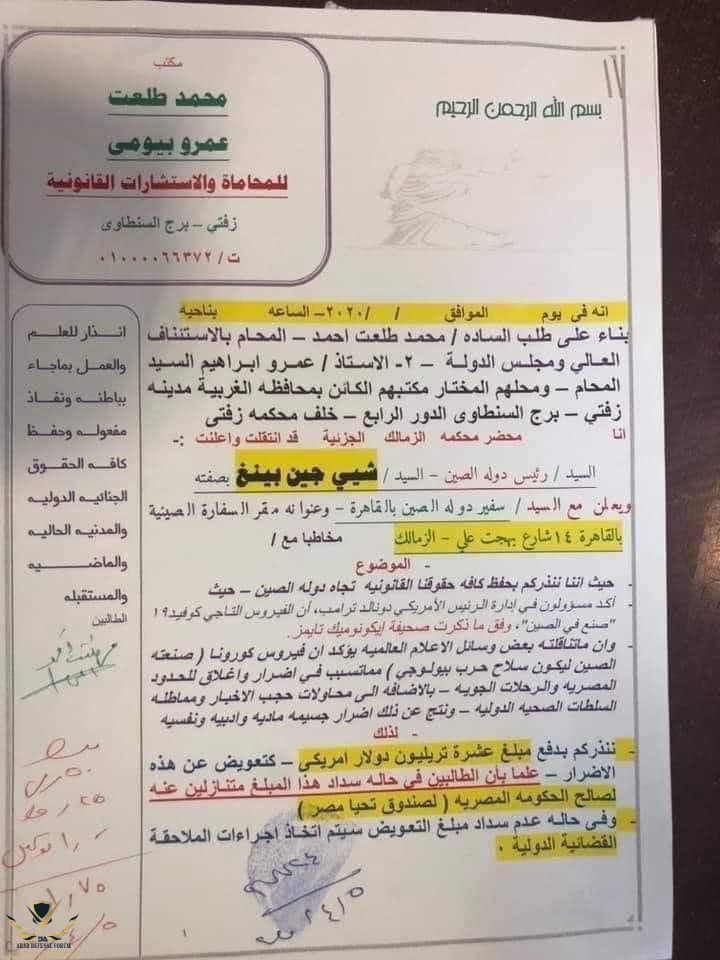 ١٢
بسم الله الرحمن الرحيم
مكتب
محمد طلعت
عمرو بيومى
للمحاماة والاستشارات القانونية
زفتي – برج السنطاوى
ت / ٠١٠٠٠٠٦٦٣٧٢
انه فى يوم الموافق / /٢٠٢٠- الساعه بناحيه
بناء على طلب الساده / محمد طلعت احمد – المحام بالاستئناف
العالي ومجلس الدولة – ٢- الاستاذ / عمرو ابراهيم السيد
المحام – ومحلهم المختار مكتبهم الكائن بمحافظه الغربية مدينه
زفتي – برج السنطاوى الدور الرابع – خلف محكمه زفتى
انا محضر محكمه الزمالك الجزئية قد انتقلت واعلنت :-
السيد / رئيس دوله الصين – السيد / شيي جين بينغ بصفته
ويعلن مع السيد / سفير دوله الصين بالقاهرة – وعنوانه مقر السفارة الصينية
بالقاهرة ١٤ شارع بهجت علي – الزمالك مخاطبا مع /
- الموضوع
- حيث اننا ننذركم بحفظ كافه حقوقنا القانونيه تجاه دوله الصين – حيث
- أكد مسؤولون في إدارة الرئيس الأمريكي دونالد ترامب، أن الفيروس التاجي كوفيد١٩
"صنع في الصين"، وفق ما ذكرت صحيفة إيكونوميك تايمز.
- وان ماتناقلته بعض وسائل الاعلام العالميه يؤكد ان فيروس كورونا ( صنعته
الصين ليكون سلاح حرب بيولوجي ) مماتسبب في اضرار واغلاق للحدود
المصريه والرحلات الجويه – بالاضافه الى محاولات حجب الاخبار ومماطله
السلطات الصحيه الدوليه – ونتج عن ذلك اضرار جسيمه ماديه وادبيه ونفسيه
- لذلك
- ننذركم بدفع مبلغ عشرة تريليون دولار امريكي – كتعويض عن هذه
الاضرار – علما بأن الطالبين في حاله سداد هذا المبلغ متنازلين عنه
لصالح الحكومه المصريه ( لصندوق تحيا مصر )
- وفى حاله عدم سداد مبلغ التعويض سيتم اتخاذ اجراءات الملاحقة
القضائية الدولية .
انذار للعلم
والعمل بماجاء
بباطنه ونفاذ
مفعوله وحفظ
كافه الحقوق
الجنائيه الدوليه
والمدنيه الحاليه
والماضيه
والمستقبله
الطالبين
١
ARAB DEFENSE FORUM